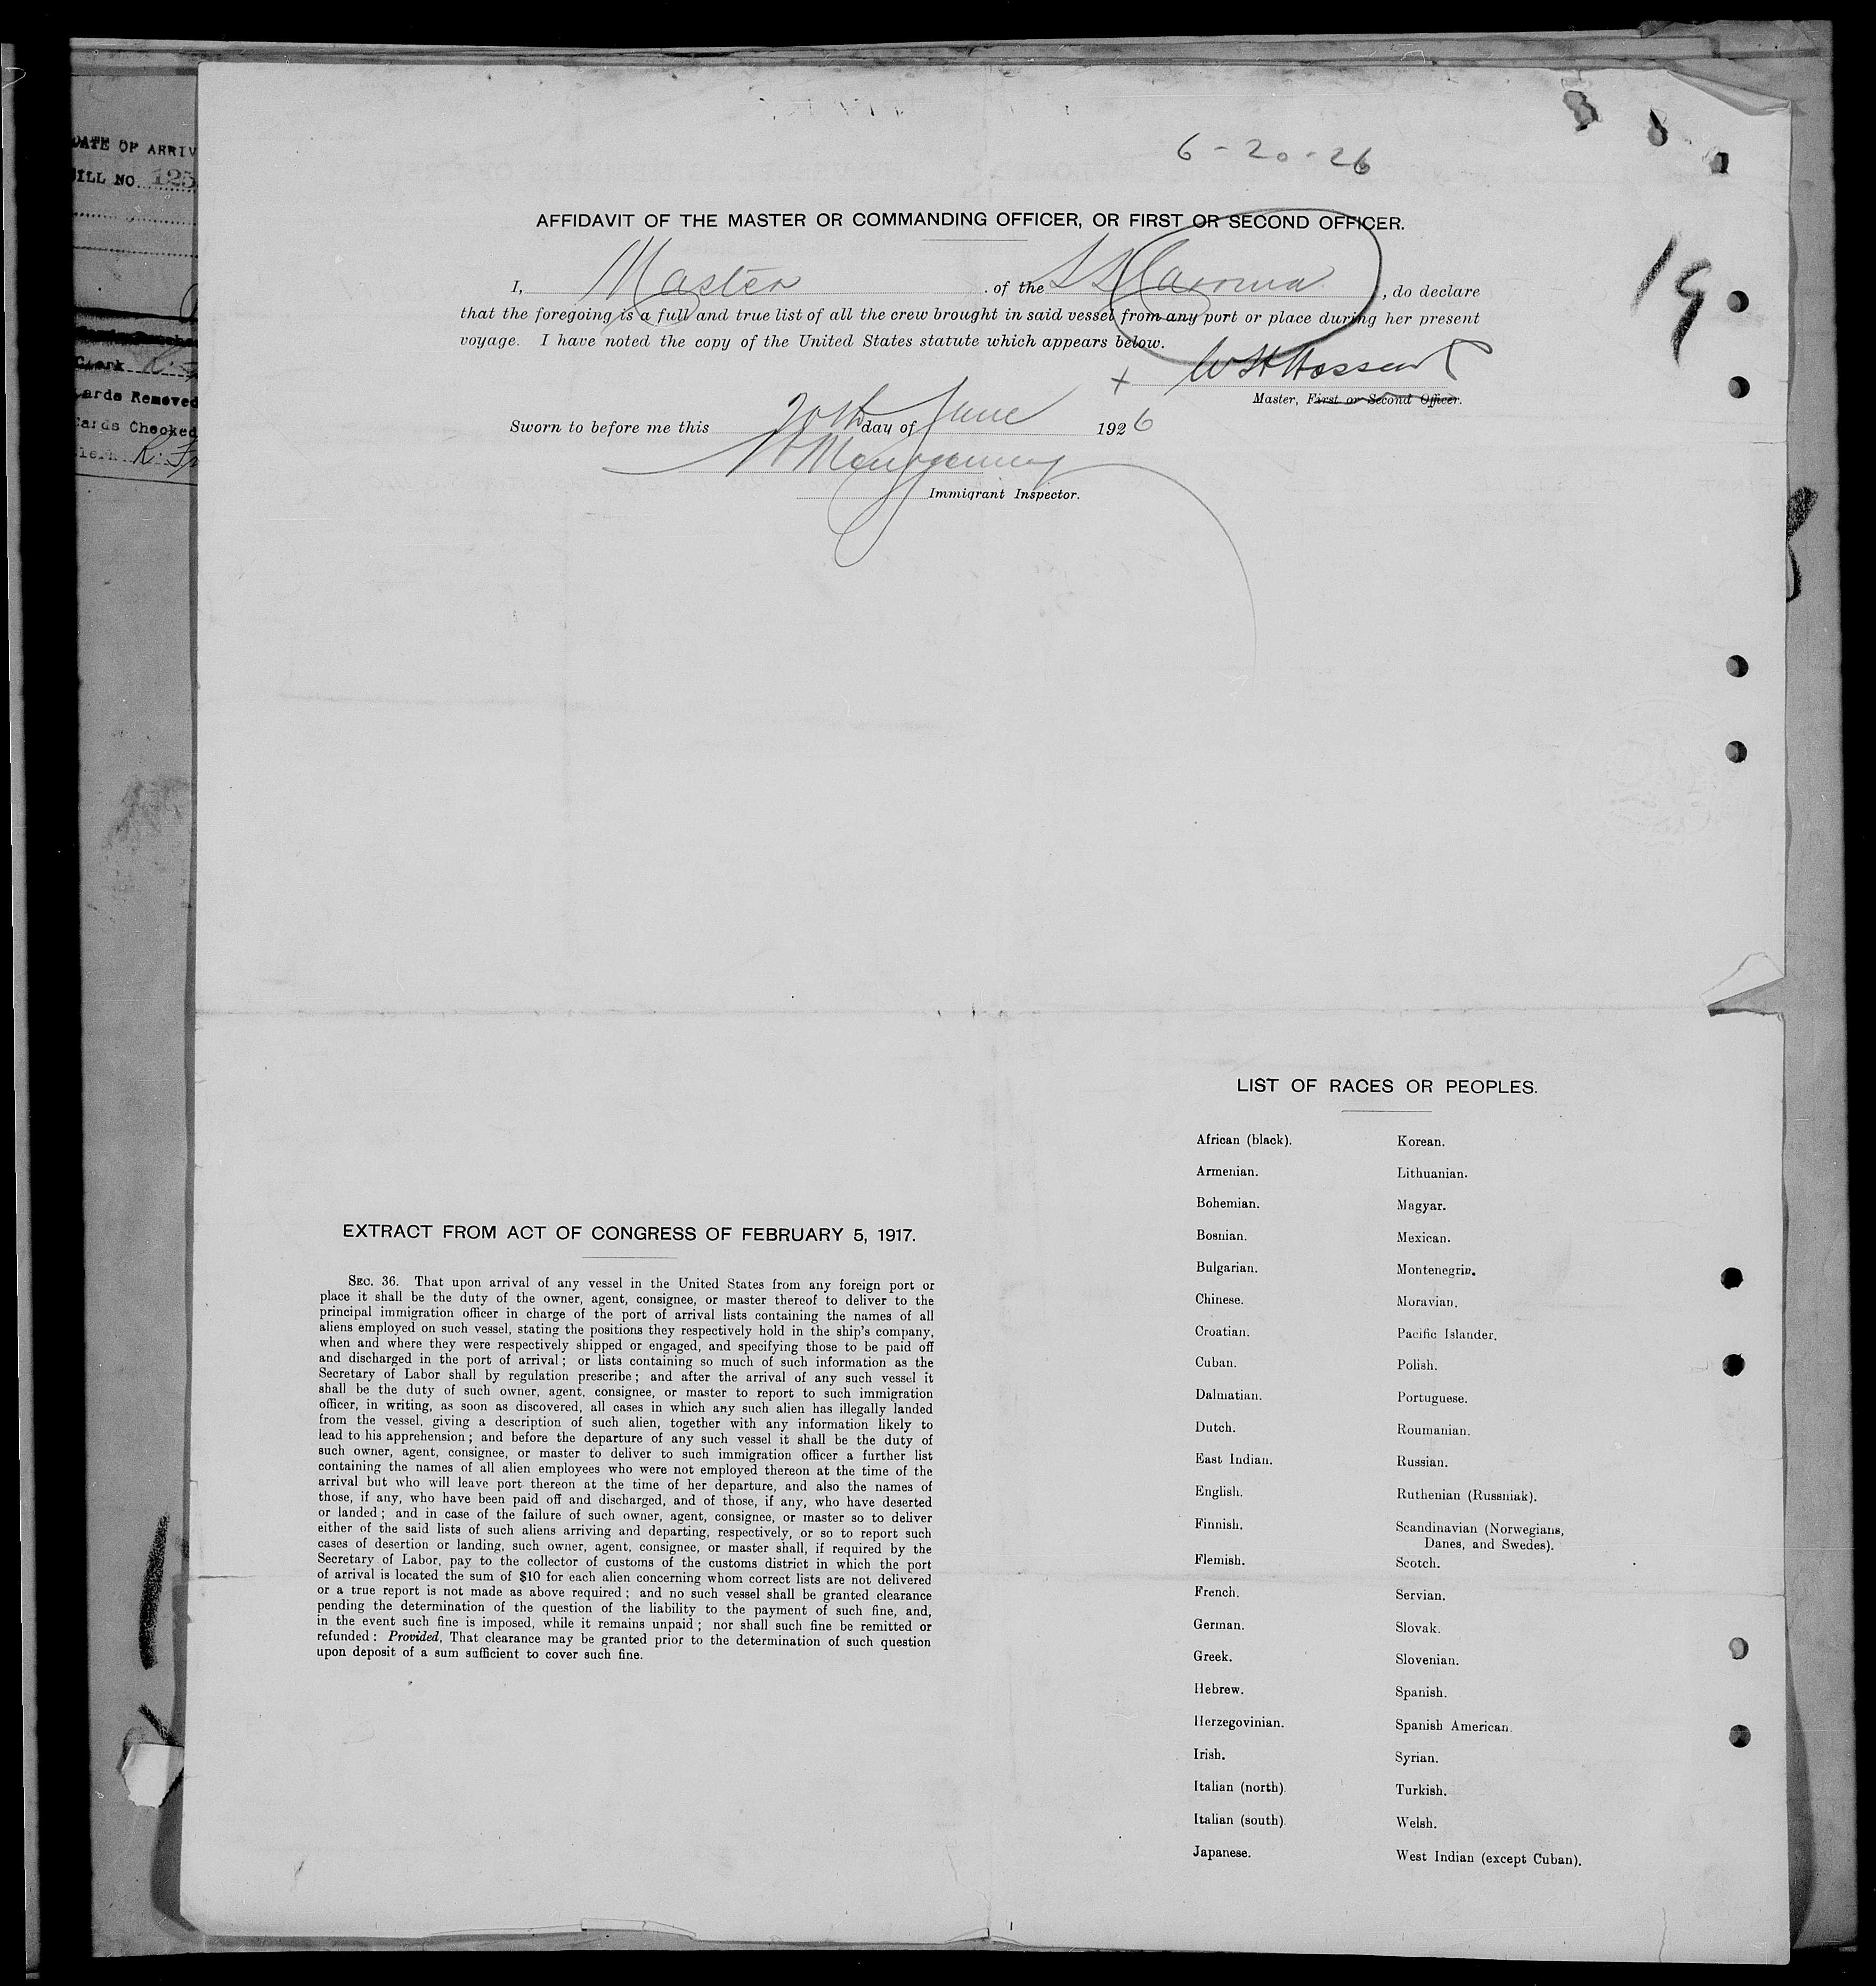 6-20-26
19
AFFIDAVIT OF THE MASTER OR COMMANDING OFFICER, OR FIRST OR SECOND OFFICER.
I, Master of the SS , do declare
that the foregoing is a full and true list of all the crew brought in said vessel from any port or place during her present
voyage. I have noted the copy of the United States statute which appears below.
X W H
Master, First or Second Officer.
Sworn to before me this 20th day of June 1926
Montgomery
Immigrant Inspector.
DATE OF ARRIV
BILL NO. 125
Clerk
Cards Removed
Cards Checked
EXTRACT FROM ACT OF CONGRESS OF FEBRUARY 5, 1917.
SEC. 36. That upon arrival of any vessel in the United States from any foreign port or
place it shall be the duty of the owner, agent, consignee, or master thereof to deliver to the
principal immigration officer in charge of the port of arrival lists containing the names of all
aliens employed on such vessel, stating the positions they respectively hold in the ship's company,
when and where they were respectively shipped or engaged, and specifying those to be paid off
and discharged in the port of arrival; or lists containing so much of such information as the
Secretary of Labor shall by regulation prescribe; and after the arrival of any such vessel it
shall be the duty of such owner, agent, consignee, or master to report to such immigration
officer, in writing, as soon as discovered, all cases in which any such alien has illegally landed
from the vessel, giving a description of such alien, together with any information likely to
lead to his apprehension; and before the departure of any such vessel it shall be the duty of
such owner, agent, consignee, or master to deliver to such immigration officer a further list
containing the names of all alien employees who were not employed thereon at the time of the
arrival but who will leave port thereon at the time of her departure, and also the names of
those, if any, who have been paid off and discharged, and of those, if any, who have deserted
or landed; and in case of the failure of such owner, agent, consignee, or master so to deliver
either of the said lists of such aliens arriving and departing, respectively, or so to report such
cases of desertion or landing, such owner, agent, consignee, or master shall, if required by the
Secretary of Labor, pay to the collector of customs of the customs district in which the port
of arrival is located the sum of $10 for each alien concerning whom correct lists are not delivered
or a true report is not made as above required; and no such vessel shall be granted clearance
pending the determination of the question of the liability to the payment of such fine, and,
in the event such fine is imposed, while it remains unpaid; nor shall such fine be remitted or
refunded: Provided, That clearance may be granted prior to the determination of such question
upon deposit of a sum sufficient to cover such fine.
LIST OF RACES OR PEOPLES.
African (black).
Armenian.
Bohemian.
Bosnian.
Bulgarian.
Chinese.
Croatian.
Cuban.
Dalmatian.
Dutch.
East Indian.
English.
Finnish.
Flemish.
French.
German.
Greek.
Hebrew.
Herzegovinian.
Irish.
Italian (north).
Italian (south).
Japanese.
Korean.
Lithuanian.
Magyar.
Mexican.
Montenegrin.
Moravian.
Pacific Islander.
Polish.
Portuguese.
Roumanian.
Russian.
Ruthenian (Russniak).
Scandinavian (Norwegians,
Danes, and Swedes).
Scotch.
Servian.
Slovak.
Slovenian.
Spanish.
Spanish American.
Syrian.
Turkish.
Welsh.
West Indian (except Cuban).